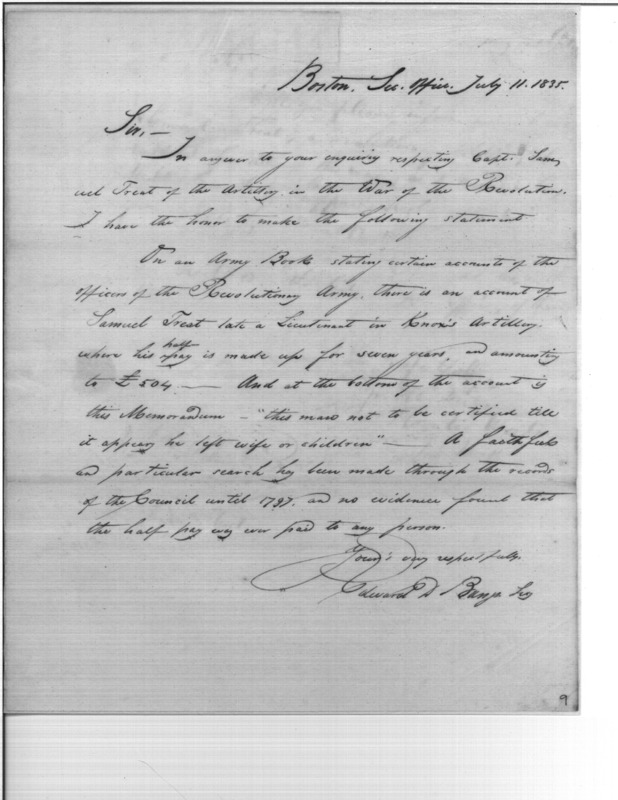 Boston. Sec. Office. July 11. 1835.
Sir,—
In answer to your enquiry respecting Capt. Sam
uel Treat of the Artillery in the War of the Revolution.
I have the honor to make the following statement
On an Army Book stating certain accounts of the
officers of the Revolutionary Army, there is an account of
Samuel Treat late a Lieutenant in Knox's Artillery.
half
where his pay is made up for seven years, and amounting
to £504.— And at the bottom of the account is
this Memorandum – "this man not to be certified till
it appears he left wife or children"— A faithful
and particular search has been made through the records
of the Council until 1797, and no evidence found that
the half pay was ever paid to any person.
Your's very respectfully.
Edward D Bangs Secy
9